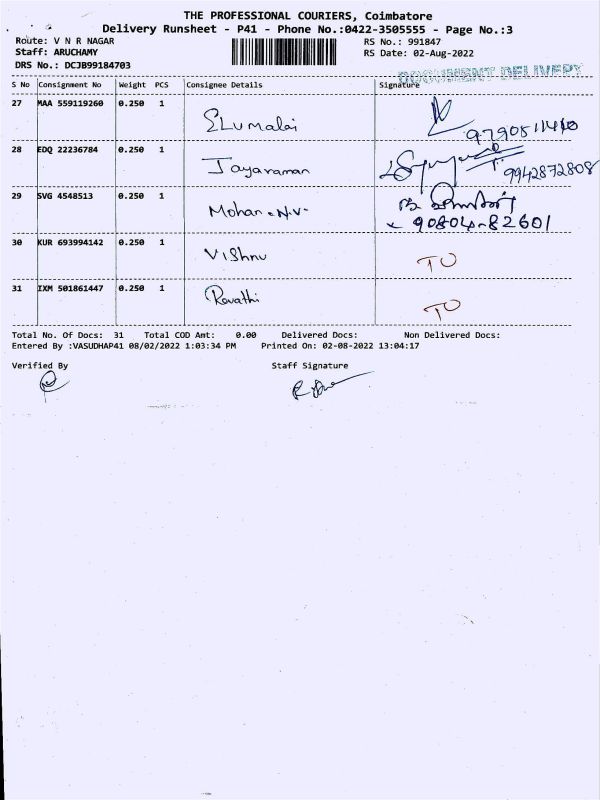 THE PROFESSIONAL COURIERS, Coimbatore
Delivery Runsheet - P41 - Phone No.:0422-3505555 - Page No.:3
Route: V N R NAGAR RS No.: 991847
Staff: ARUCHAMY RS Date: 02-Aug-2022
DRS No.: DCJB99184703
DOCUMENT DELIVERY
S No Consignment No Weight PCS Consignee Details Signature
27 MAA 559119260 0.250 1 Elumalai
28 EDQ 22236784 0.250 1 Jayaraman 9942872808
29 SVG 4548513 0.250 1 Mohan.N.V.
90804-82601
30 KUR 693994142 0.250 1 Vishnu TO
31 IXM 501861447 0.250 1 Revathi TO
Total No. Of Docs: 31 Total COD Amt: 0.00 Delivered Docs: Non Delivered Docs:
Entered By :VASUDHAP41 08/02/2022 1:03:34 PM Printed On: 02-08-2022 13:04:17
Verified By Staff Signature